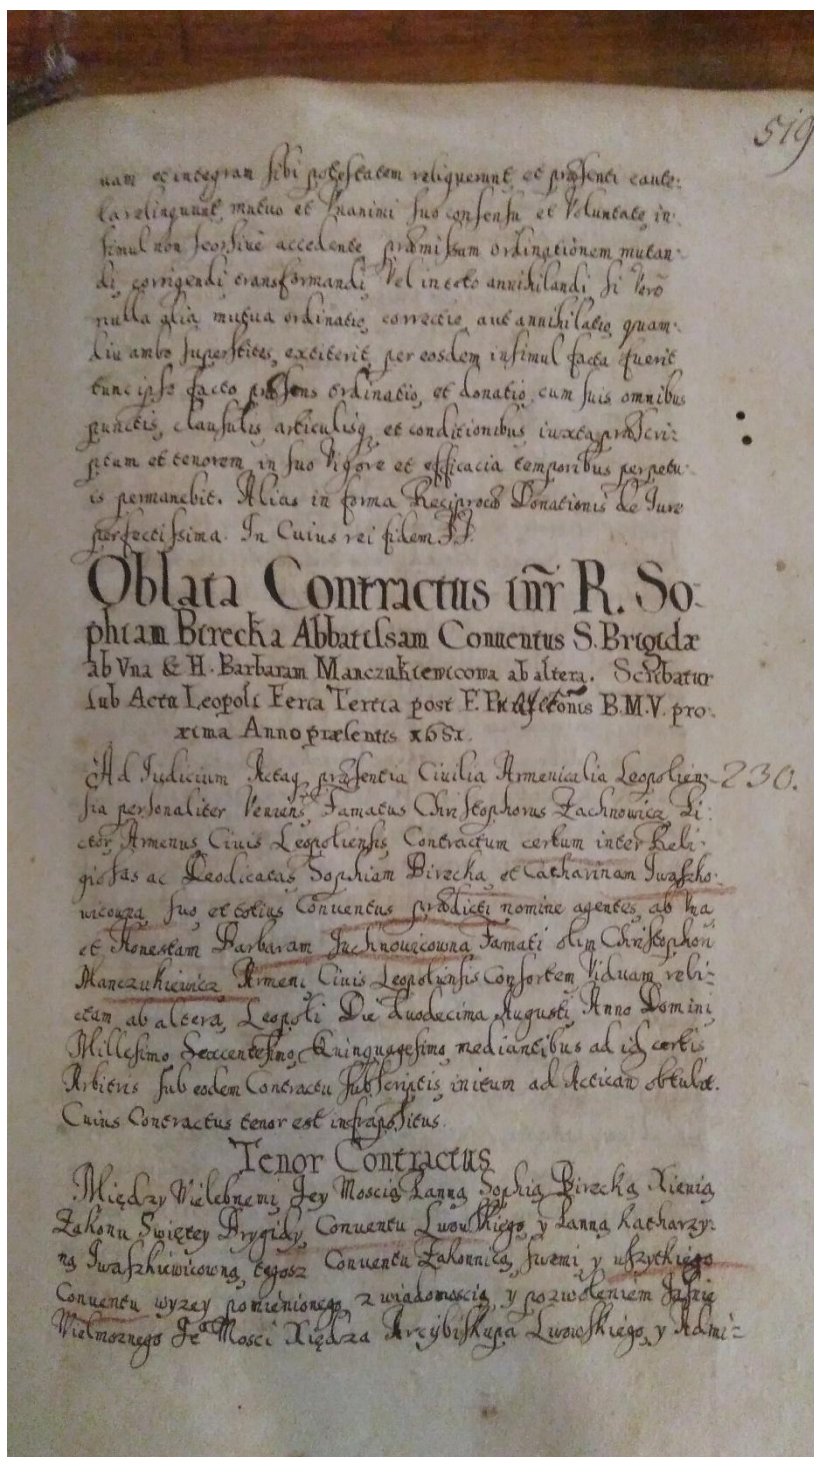 519
nam et integram sibi potestatem reliquerunt et præsenti caute:
la relinquunt, mutuo et Vnanimi suo consensu et Voluntate in:
simul non seorsiue accedente, præmissam ordinationem mutan:
di, corrigendi transformandi, Vel in toto annihilandi. Si Verò
nulla alia mutua ordinatio, correctio, aut annihilatio, quam:
diu ambo superstites, extiterit, per eosdem insimul facta fuerit
tunc ipso facto præsens ordinatio, et donatio, cum suis omnibus
punctis, clausulis, articulisq, et conditionibus iuxta præscri:
ptum et tenorem, in suo Vigore et efficacia temporibus perpetu:
is permanebit. Alias in forma Reciprocæ Donationis de Iure
perfectissima. In Cuius rei fidem
Oblata Contractus inr̃ R. So:
phiam Birecka Abbatissam Conuentus S. Brigidæ
ab Vna & H. Barbaram Manczukiewicowa ab altera. Scribatur
sub Actu Leopoli Feria Tertia post F. B.M.V. pro:
xima Anno præsentis 1651.
Ad Iudicium Actaq, præsentia Ciuilia Armenicalia Leopolien: 230.
sia personaliter Veniens, Famatus Christophorus Zachnowicz, Pi:
ctor, Armenus Ciuis Leopoliensis, Contractum certum inter Reli:
giosas ac Deodicatas Sophiam Birecka, et Catharinam Iwaszko:
wicowna, suo et totius Conuentus prædicti nomine agentes, ab Vna
et Honestam Barbaram Juchnowicowna, Famati olim Christophori
Manczukiewicz, Armeni Ciuis Leopoliensis Consortem Viduam reli:
ctam ab altera, Leopoli Die Duodecima Augusti, Anno Domini
Millesimo Sexcentesimo, Quinquagesimo, mediantibus ad id certis
Arbitris sub eodem Contractu subscriptis, initum ad Acticandũ obtulit.
Cuius Contractus tenor est infrapositus.
Tenor Contractus
Między Wielebnemi, Jey Moscią Panną Sophią Birecką Xienią
Zakonu Swiętey Brygidy, Conuentu Lwowskiego, y Panną Katharzy:
ną Iwaszkiewicowną, tegosz Conuentu Zakonnicą, swemi, y wszytkiego
Conuentu wyzey pomienionego, z wiadomoscią, y pozwoleniem Jasnie
Wielmoznego Jeo Mosci Xiędza Arcybiskupa Lwowskiego, y Admi: